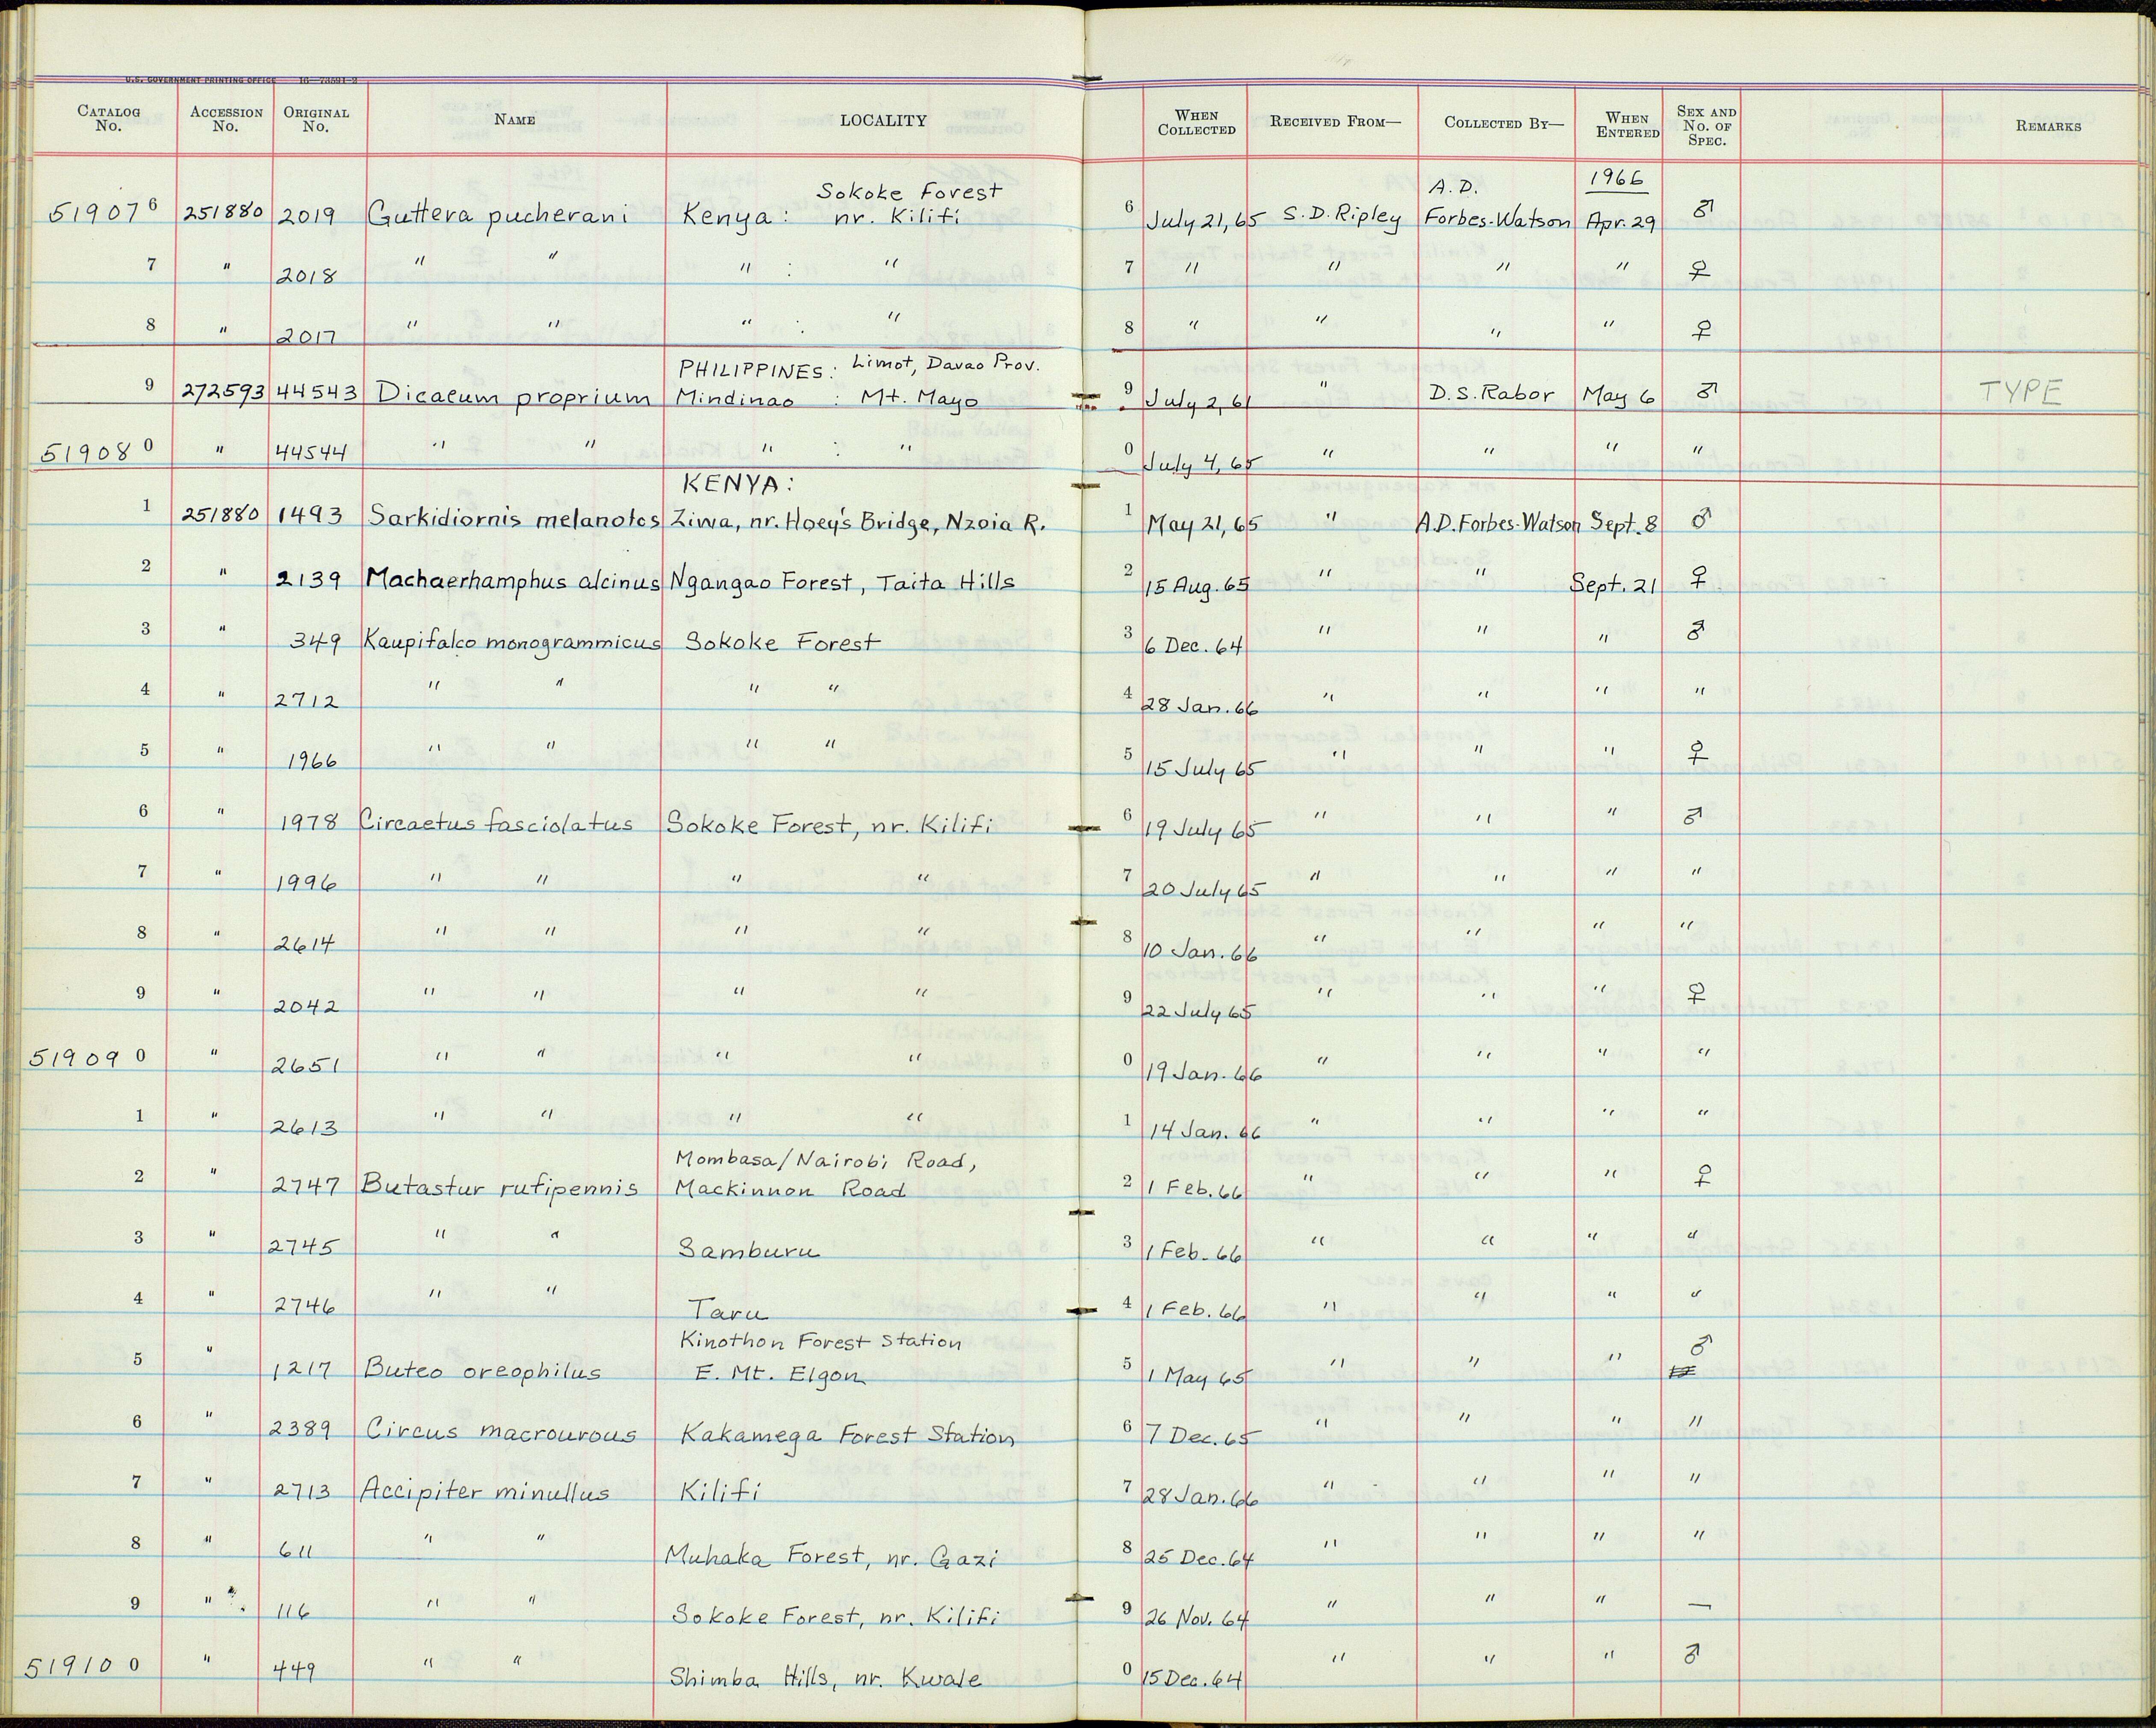 U.S. GOVERNMENT PRINTING OFFICE 16—73591-2
CATALOG No. ACCESSION No. ORIGINAL No. NAME LOCALITY WHEN COLLECTED RECEIVED FROM— COLLECTED BY— WHEN ENTERED SEX AND No. OF SPEC. REMARKS
Sokoke Forest A.D. 1966
519076 251880 2019 Guttera pucherani Kenya: nr. Kilifi 6 July 21, 65 S.D. Ripley Forbes-Watson Apr. 29 ♂
7 " 2018 " " " : " 7 " " " " ♀
8 " 2017 " " " : " 8 " " " " ♀
PHILIPPINES: Limot, Davao Prov.
9 272593 44543 Dicaeum proprium Mindinao : Mt. Mayo 9 July 2, 61 " D.S. Rabor May 6 ♂ TYPE
519080 " 44544 " " " : " 0 July 4, 65 " " " "
KENYA:
1 251880 1493 Sarkidiornis melanotos Ziwa, nr. Hoey's Bridge, Nzoia R. 1 May 21, 65 " A.D. Forbes-Watson Sept. 8 ♂
2 " 2139 Machaerhamphus alcinus Ngangao Forest, Taita Hills 2 15 Aug. 65 " " Sept. 21 ♀
3 " 349 Kaupifalco monogrammicus Sokoke Forest 3 6 Dec. 64 " " " ♂
4 " 2712 " " " " 4 28 Jan. 66 " " " "
5 " 1966 " " " " 5 15 July 65 " " " ♀
6 " 1978 Circaetus fasciolatus Sokoke Forest, nr. Kilifi 6 19 July 65 " " " ♂
7 " 1996 " " " " 7 20 July 65 " " " "
8 " 2614 " " " " 8 10 Jan. 66 " " " "
9 " 2042 " " " " 9 22 July 65 " " " ♀
519090 " 2651 " " " " 0 19 Jan. 66 " " " "
1 " 2613 " " " " 1 14 Jan. 66 " " " "
Mombasa/Nairobi Road,
2 " 2747 Butastur rufipennis Mackinnon Road 2 1 Feb. 66 " " " ♀
3 " 2745 " " Samburu 3 1 Feb. 66 " " " "
4 " 2746 " " Taru 4 1 Feb. 66 " " " "
Kinothon Forest Station ♂
5 " 1217 Buteo oreophilus E. Mt. Elgon 5 1 May 65 " " "
6 " 2389 Circus macrourous Kakamega Forest Station 6 7 Dec. 65 " " " "
7 " 2713 Accipiter minullus Kilifi 7 28 Jan. 66 " " " "
8 " 611 " " Muhaka Forest, nr. Gazi 8 25 Dec. 64 " " " "
9 " 116 " " Sokoke Forest, nr. Kilifi 9 26 Nov. 64 " " " —
519100 " 449 " " Shimba Hills, nr. Kwale 0 15 Dec. 64 " " " ♂